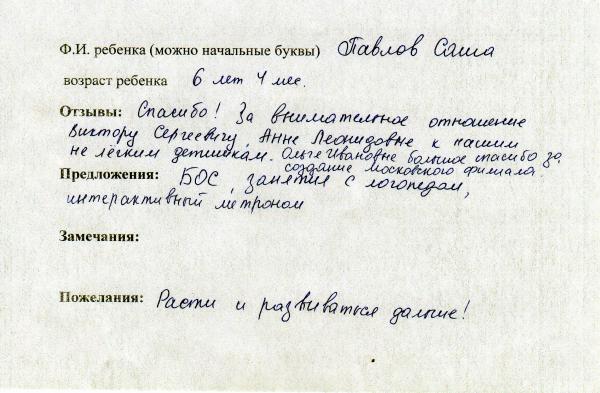 Ф.И. ребенка (можно начальные буквы) Павлов Саша
возраст ребенка 6 лет 4 мес.
Отзывы: Спасибо! За внимательное отношение
Виктору Сергеевичу, Анне Леонидовне к нашим
не лёгким детишкам. Ольге Ивановне большое спасибо за
создание московского филиала
Предложения: БОС, занятия с логопедом,
интерактивный метроном
Замечания:
Пожелания: Расти и развиваться дальше!